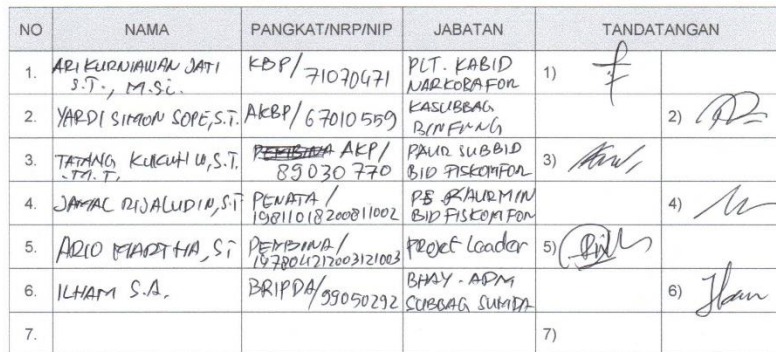 NO NAMA PANGKAT/NRP/NIP JABATAN TANDATANGAN
1. ARI KURNIAWAN JATI S.T., M.Si. KBP/71070471 PLT. KABID NARKOBAFOR 1)
2. YARDI SIMON SOPE, S.T. AKBP/67010559 KASUBBAG 2)
3. TATANG KUKUH W, S.T. .M.T. AKP/89030770 PAUR SUBBID BID FISKOMFOR 3)
4. JAMAL RIJALUDIN, S.T PENATA/19811018200811002 PS PAURMIN BID FISKOMFOR 4)
5. ARIO MARTHA, ST PEMBINA/197804212003121003 Project Leader 5)
6. ILHAM S.A. BRIPDA/99050292 BHAY-ADM SUBBAG SUMDA 6)
7. 7)